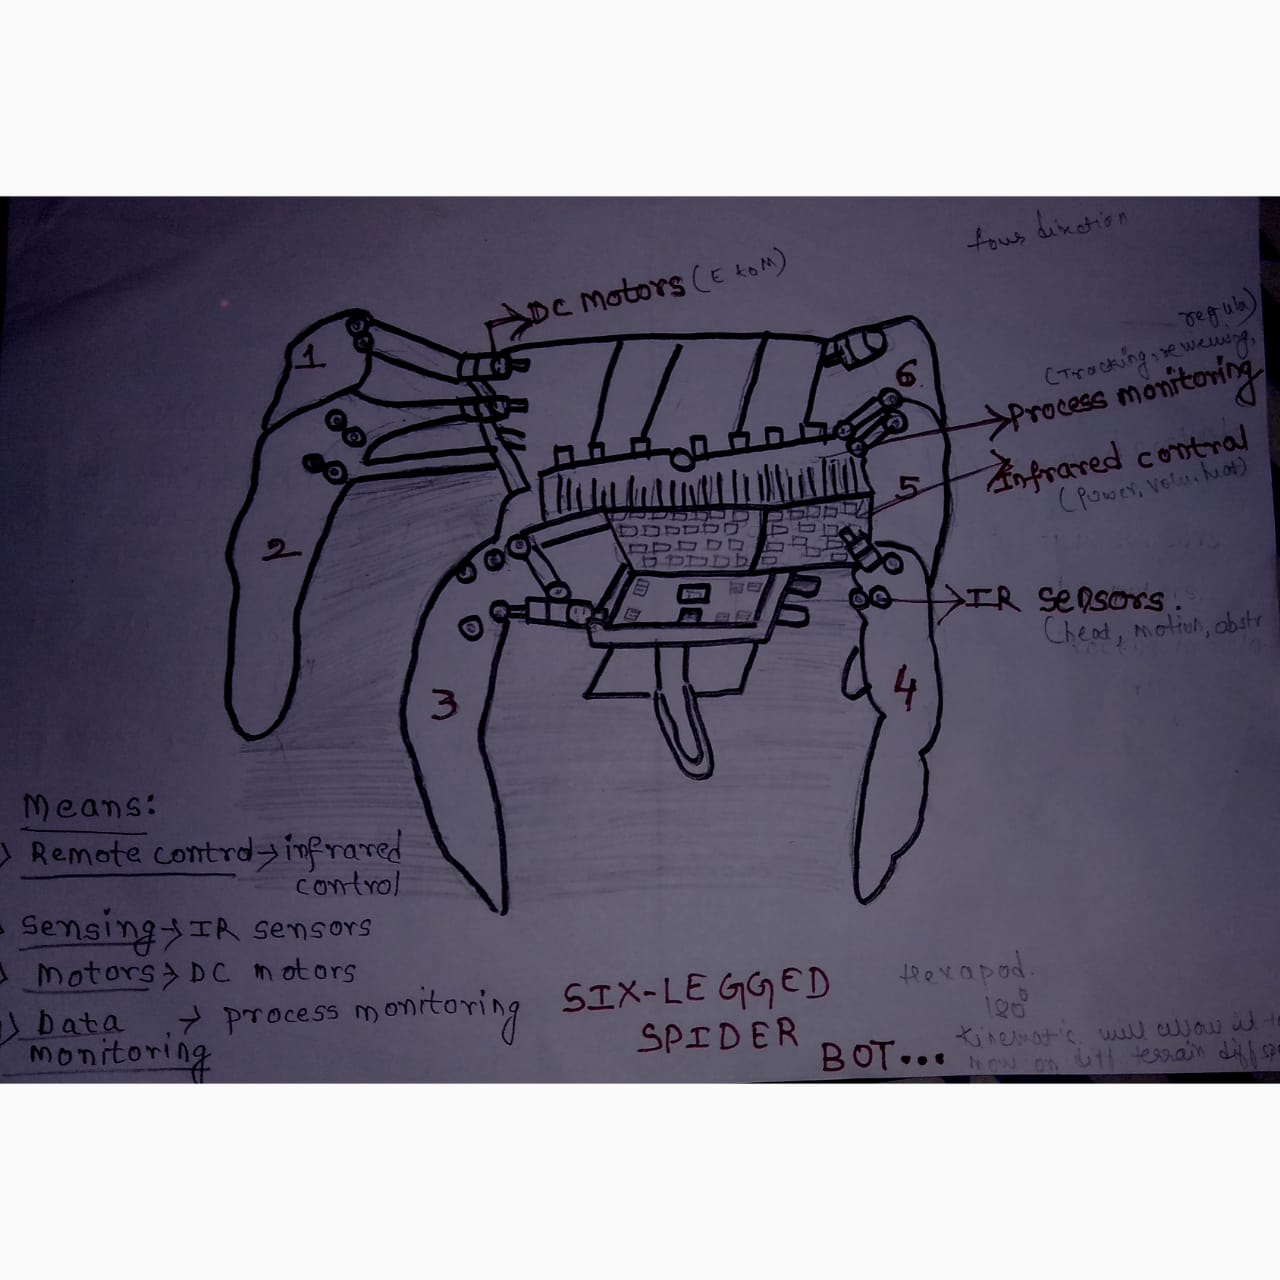 four direction
DC Motors (E to M)
regula)
(Tracking, reviewing,
Process monitoring
Infrared control
(Power, volu, heat)
IR sensors.
(heat, motion, obstr
1
2
3
4
5
6
Means:
Remote control → infrared
control
Sensing → IR sensors
Motors → DC motors
Data → process monitoring
monitoring
SIX-LEGGED
SPIDER
BOT...
Hexapod.
180°
Kinematic will allow it to
mov on diff terrain diff